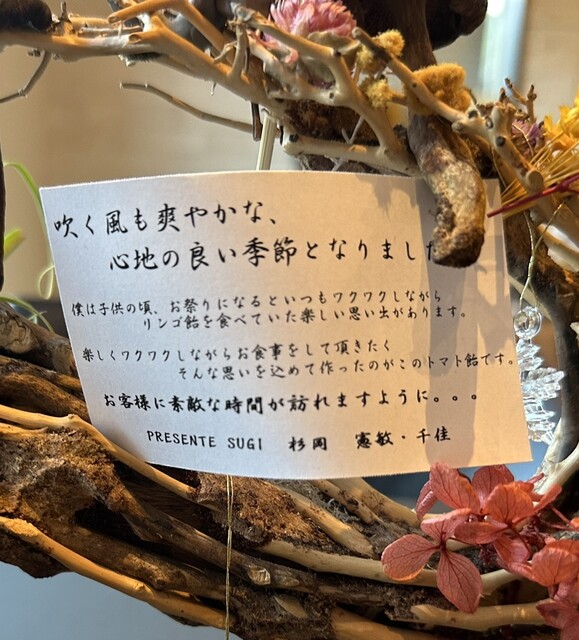 吹く風も爽やかな、
心地の良い季節となりました
僕は子供の頃、お祭りになるといつもワクワクしながら
リンゴ飴を食べていた楽しい思い出があります。
楽しくワクワクしながらお食事をして頂きたく
そんな思いを込めて作ったのがこのトマト飴です。
お客様に素敵な時間が訪れますように。。。
PRESENTE SUGI 杉岡 憲敏・千佳